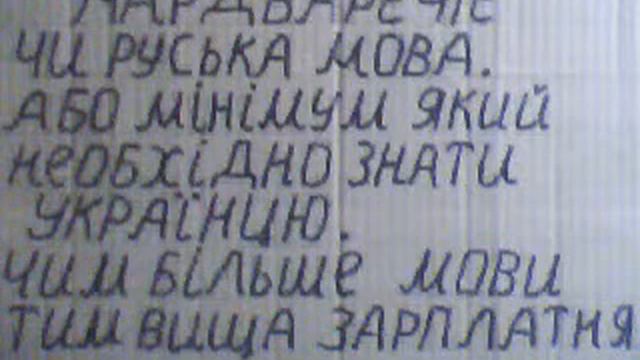 ЧИ РУСЬКА МОВА.
АБО МІНІМУМ ЯКИЙ
НЕОБХІДНО ЗНАТИ
УКРАЇНЦЮ.
ЧИМ БІЛЬШЕ МОВИ
ТИМ ВИЩА ЗАРПЛАТНЯ